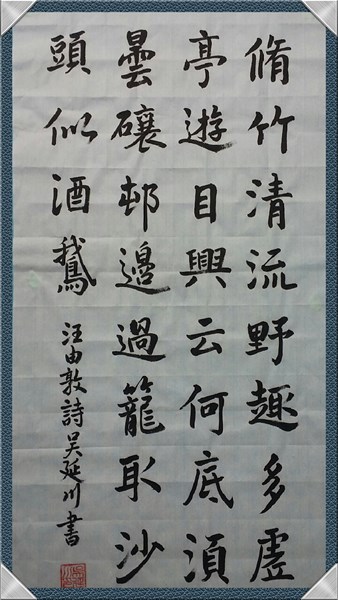 脩竹清流野趣多虛
亭遊目興云何底須
曇邨邊過籠取沙
頭似酒鵝
汪由敦詩吳延川書